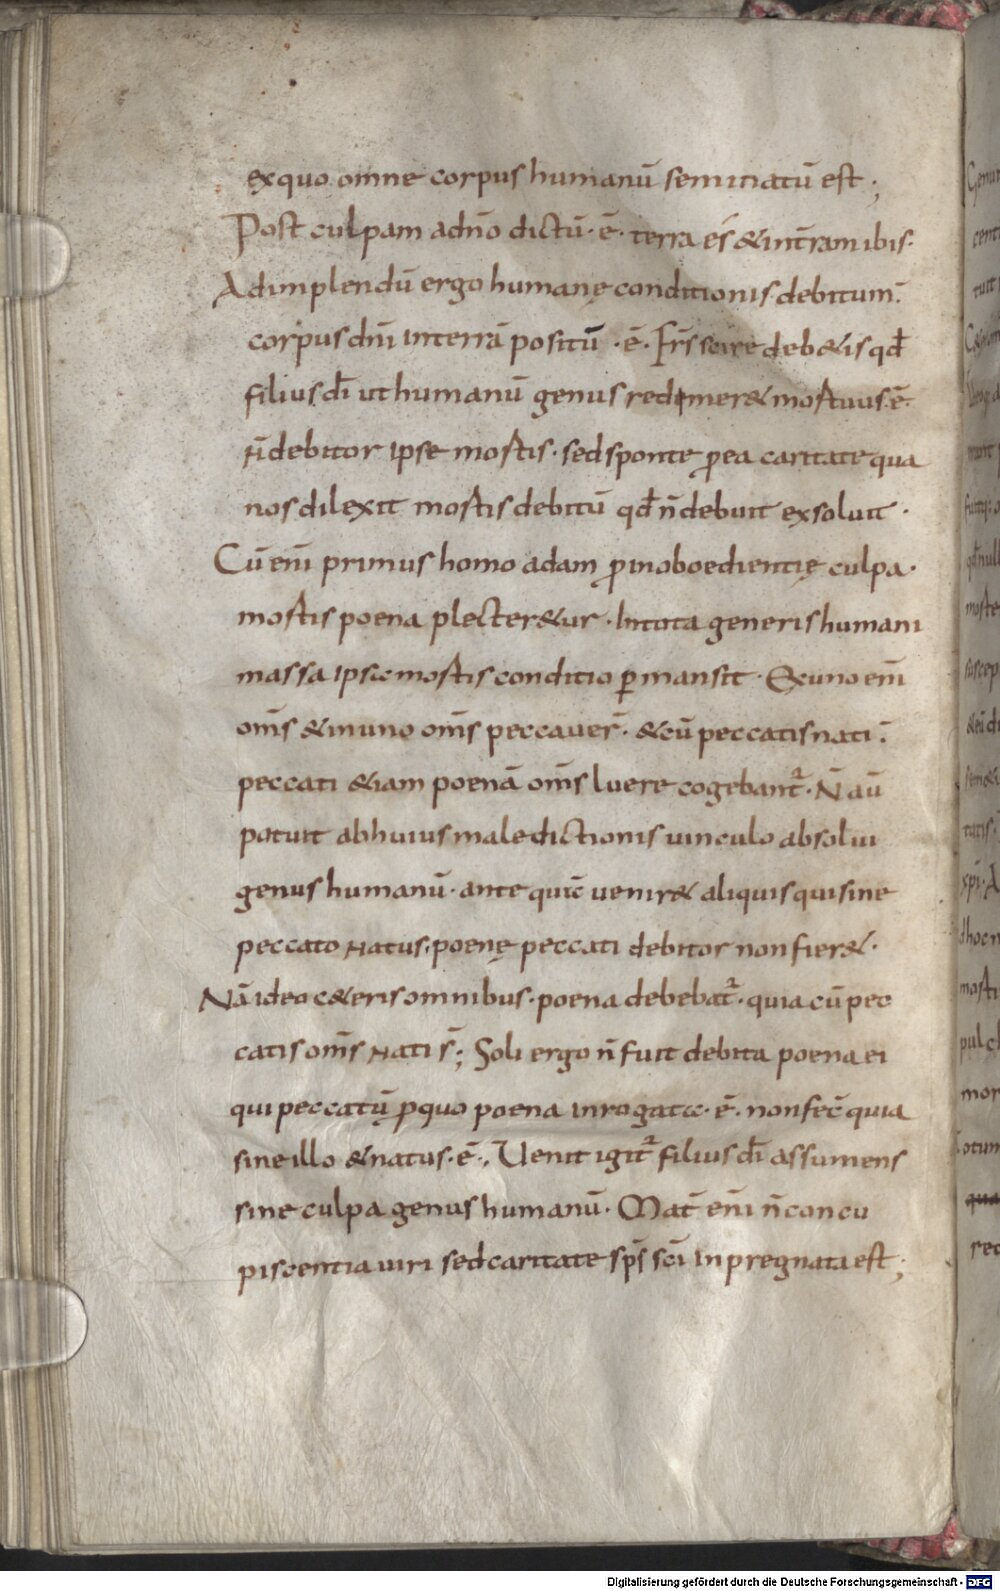 exquo omne corpus humanū seminatū est;
Post culpam adn̄o dictū·ē· terra es̄ & int̄ram ibis·
Adimplendū ergo humanę conditionis debitum·
corpus dn̄i interrā positū ·ē· Fr̄s scire deb&is qđ
filius dī ut humanū genus redimer& mortuus·ē·
n̄ debitor ipse mortis· sed sponte ꝓea caritate qua
nos dilexit mortis debitū qđ n̄ debuit exsoluit·
Cū eni̅ primus homo adam ꝓ inoboedientię culpa·
mortis poena plecter&ur· Intota generis humani
massa ipsa mortis conditio ꝑmansit· Ex uno eni̅
om̄s & inuno om̄s peccauer̄· & cū peccatis nati·
peccati &iam poenā om̄s luere cogebant̄· N̄ aū
potuit abhuius maledictionis uinculo absolui
genus humanū· ante quā uenir& aliquis qui sine
peccato natus, poenę peccati debitor non fier&·
Nā ideo c&eris omnibus· poena debebat̄· quia cū pec
catis om̄s nati s̄; Soli ergo n̄ fuit debita poena ei
qui peccatū ꝓquo poena inrogata·ē· non fec̄ quia
sine illo & natus·ē·, Uenit igit̄ filius dī assumens
sine culpa genus humanū· Mat̄ eni̅ n̄ concu
piscentia uiri sed caritate sp̄s sc̄i inpregnata est;
Digitalisierung gefördert durch die Deutsche Forschungsgemeinschaft - DFG